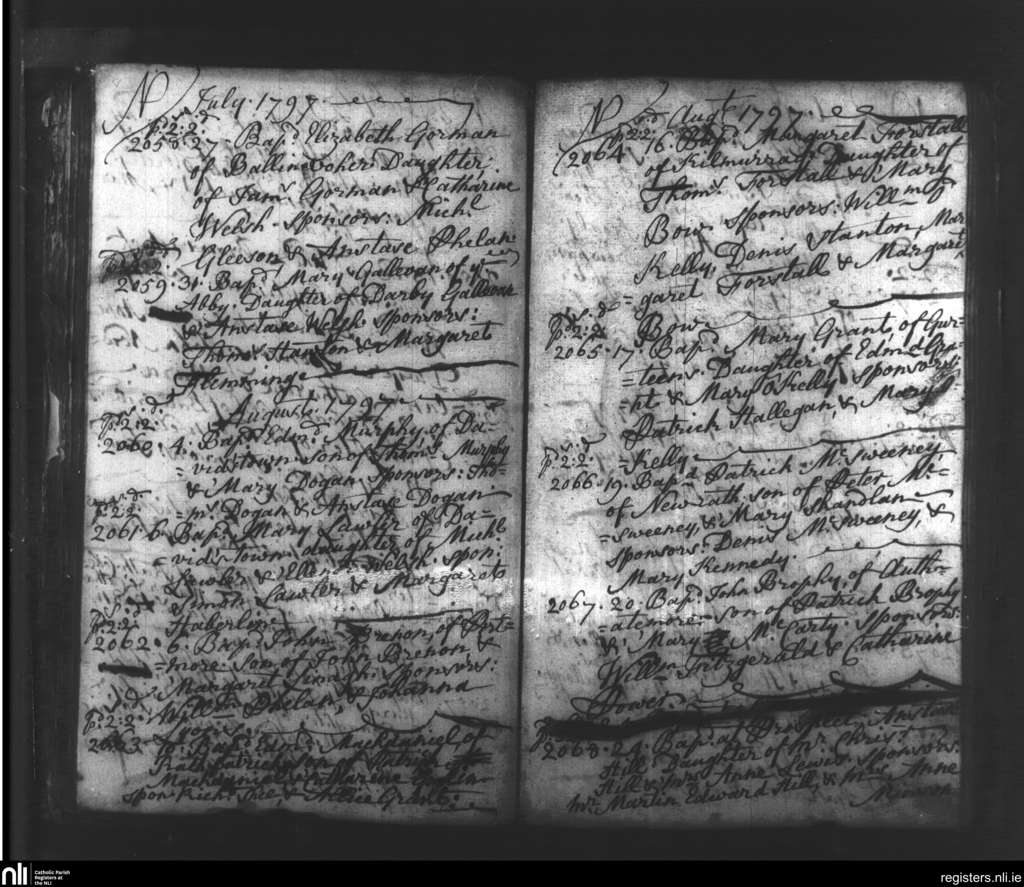 N July. 1797.
s. d.
p. 2: 2:
2058. 27. Bap.d Elizabeth Gorman
of Ballincloher Daughter,
of Jam.s Gorman & Catharine
Welsh. Sponsors: Mich.l
Gleeson & Anstase Phelan.
2059. 31. Bap.d Mary Gallevan of y.e
Abby. Daughter of Darby Gallevan
& Anstase Welsh. Sponsors:
Thom.s Stanton & Margaret
Flemminge
August. 1797.
s. d.
p. 2: 2:
2060. 4. Bap.d Edm.d Murphy of Da=
=vidstown son of Thom.s Murphy
& Mary Dogan. Sponsors: Tho=
=m.s Dogan & Anstase Dogan.
s. d.
p. 2: 2
2061. 6. Bap.d Mary Lawler of Da=
=vid's Town daughter of Mich.l
Lawler & Ellen Welsh. Spon:
Simon Lawler & Margaret
Haberlin
s. d.
p. 2: 2:
2062. 6. Bap.d John Brenon, of Port=
=more. Son of John Brenon &
Margaret Sinagh. Sponsors:
Will.m Phelan, & Johanna
s. d.
p. 2: 2:
2063 10. Bap.d Edm.d Mackdaniel of
Rathpatrick, son of Patrick
Mackdaniel & Catharine
spon: Rich.d Shee, & Allice Grant.
N Aug.t 1797.
s. d.
p. 2: 2:
2064. 16. Bap.d Margaret Forstall
of Kilmurray. Daughter of
Thom.s Forstall & Mary
Bow. Sponsors: Will.m
Kelly, Denis Stanton, Mar
=garet Forstall & Margaret
Bow.
s. d.
p. 2: 2.
2065. 17. Bap.d Mary Grant, of Gur=
=teens. Daughter of Edm.d Gra=
=nt & Mary O Kelly Sponsors:
Patrick Hallegan, & Mary
=Kelly
s. d.
p. 2: 2:
2066. 19. Bap.d Patrick Mc.Sweeney
of Newrath son of Peter, Mc=
=sweeney, & Mary Shandlan
sponsors: Denis Mc.sweeney, &
Mary Kennedy.
2067. 20. Bap.d John Brophy of Auth=
=atemore. son of Patrick Brophy
& Mary Mc.Carty. Sponsors:
Will.m Fitzgerald & Catharine
Power
2068. 24. Bap.d at Prospect, Anstase
Hill. Daughter of Mr. Christ.r
Hill & Mrs. Anne Lewis. Sponsors:
Mr. Martin Edward Hill, & Mrs. Anne
nli Catholic Parish
Registers at
the NLI
registers.nli.ie